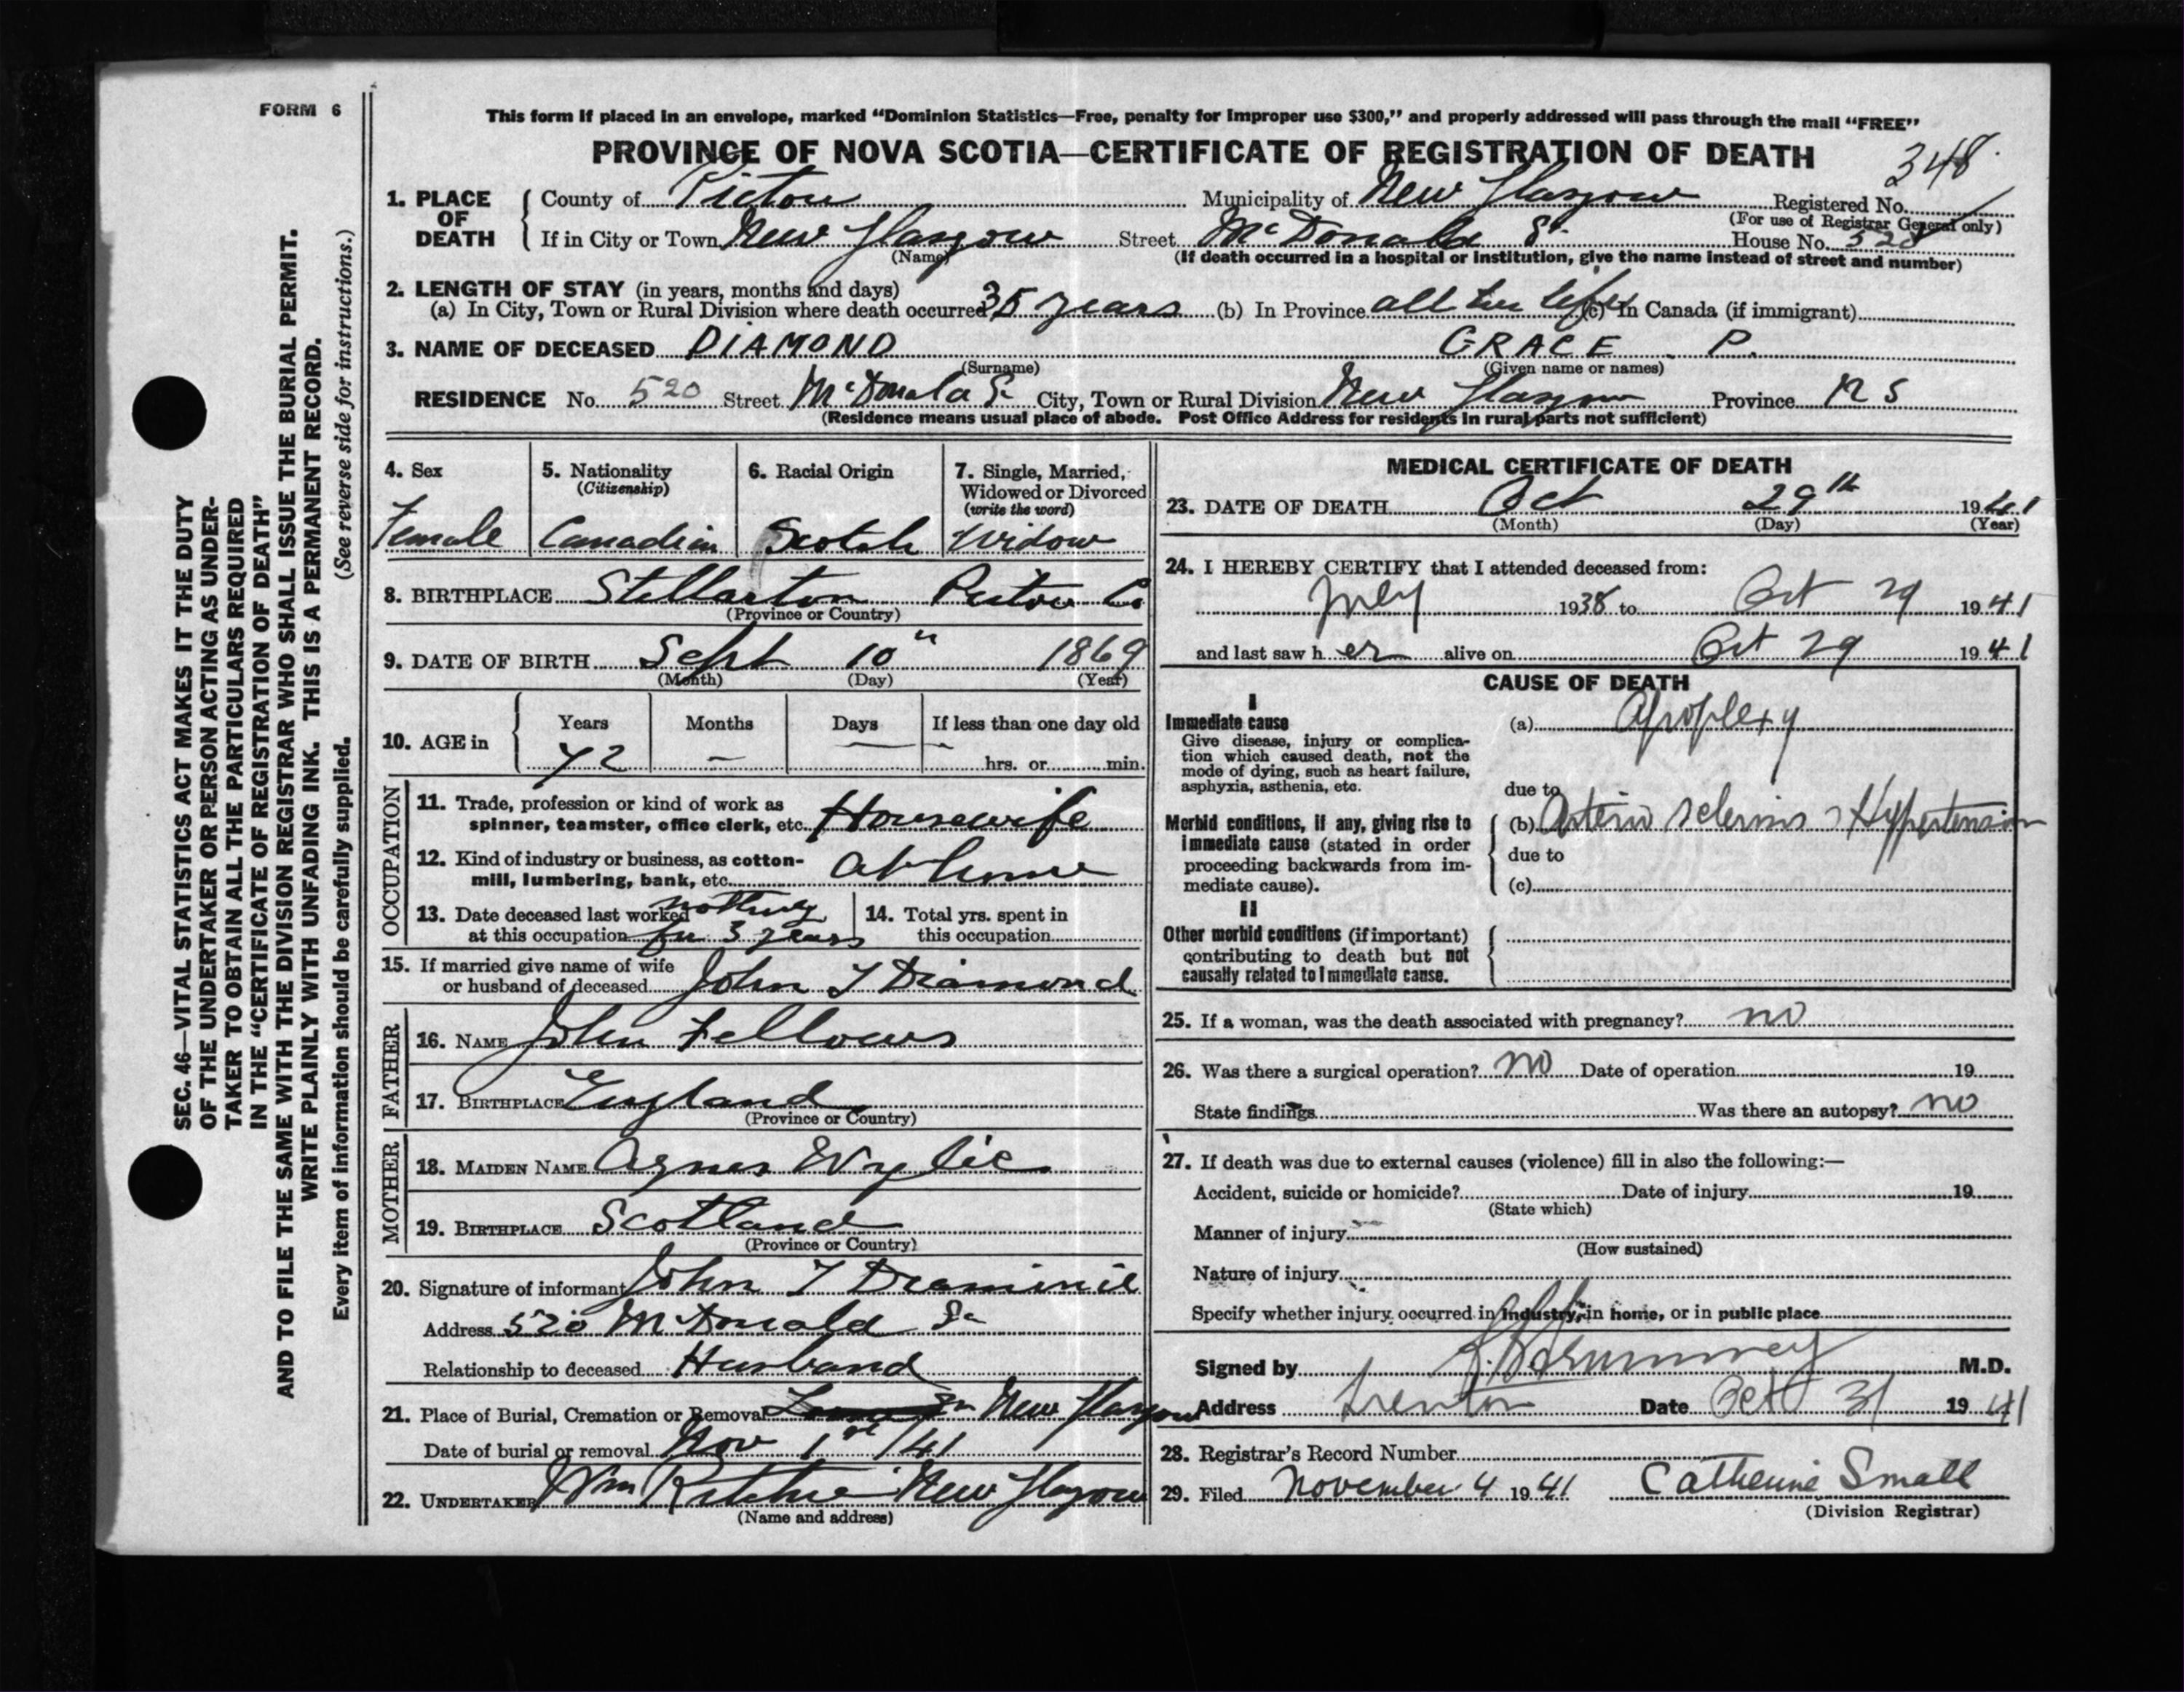 FORM 6
This form if placed in an envelope, marked "Dominion Statistics—Free, penalty for improper use $300," and properly addressed will pass through the mail "FREE"
PROVINCE OF NOVA SCOTIA—CERTIFICATE OF REGISTRATION OF DEATH
348
1. PLACE OF DEATH
County of Pictou Municipality of New Glasgow Registered No.
(For use of Registrar General only)
If in City or Town New Glasgow Street McDonald St House No. 520
(Name)
(If death occurred in a hospital or institution, give the name instead of street and number)
2. LENGTH OF STAY (in years, months and days)
(a) In City, Town or Rural Division where death occurred 35 years (b) In Province all her life (c) In Canada (if immigrant)
3. NAME OF DECEASED DIAMOND GRACE P.
(Surname) (Given name or names)
RESIDENCE No. 520 Street McDonald St City, Town or Rural Division New Glasgow Province N S
(Residence means usual place of abode. Post Office Address for residents in rural parts not sufficient)
4. Sex
Female
5. Nationality
(Citizenship)
Canadian
6. Racial Origin
Scotch
7. Single, Married,
Widowed or Divorced
(write the word)
Widow
8. BIRTHPLACE Stellarton Pictou Co
(Province or Country)
9. DATE OF BIRTH Sept 10" 1869
(Month) (Day) (Year)
10. AGE in
Years Months Days If less than one day old
72 — — — hrs. or min.
OCCUPATION
11. Trade, profession or kind of work as
spinner, teamster, office clerk, etc. Housewife
12. Kind of industry or business, as cotton-
mill, lumbering, bank, etc. at home
13. Date deceased last worked nothing
at this occupation for 3 years
14. Total yrs. spent in
this occupation
15. If married give name of wife
or husband of deceased John T Diamond
FATHER
16. NAME John Fellows
17. BIRTHPLACE England
(Province or Country)
MOTHER
18. MAIDEN NAME Agnes Wylie
19. BIRTHPLACE Scotland
(Province or Country)
20. Signature of informant John T
Address 520 McDonald St
Relationship to deceased Husband
21. Place of Burial, Cremation or Removal New Glasgow
Date of burial or removal Nov 1st/41
22. UNDERTAKER Wm Ritchie New Glasgow
(Name and address)
MEDICAL CERTIFICATE OF DEATH
23. DATE OF DEATH Oct 29th 1941
(Month) (Day) (Year)
24. I HEREBY CERTIFY that I attended deceased from:
July 1938 to Oct 29 1941
and last saw her alive on Oct 29 1941
CAUSE OF DEATH
I
Immediate cause
Give disease, injury or complica-
tion which caused death, not the
mode of dying, such as heart failure,
asphyxia, asthenia, etc.
(a) Apoplexy
due to
Morbid conditions, if any, giving rise to
immediate cause (stated in order
proceeding backwards from im-
mediate cause).
(b) Arterio sclerosis Hypertension
due to
(c)
II
Other morbid conditions (if important)
contributing to death but not
causally related to immediate cause.
25. If a woman, was the death associated with pregnancy? no
26. Was there a surgical operation? no Date of operation 19
State findings Was there an autopsy? no
27. If death was due to external causes (violence) fill in also the following:—
Accident, suicide or homicide? Date of injury 19
(State which)
Manner of injury
(How sustained)
Nature of injury
Specify whether injury occurred in industry, in home, or in public place
Signed by M.D.
Address Trenton Date Oct 31 1941
28. Registrar's Record Number
29. Filed November 4 1941 Catherine Small
(Division Registrar)
SEC. 46—VITAL STATISTICS ACT MAKES IT THE DUTY
OF THE UNDERTAKER OR PERSON ACTING AS UNDER-
TAKER TO OBTAIN ALL THE PARTICULARS REQUIRED
IN THE "CERTIFICATE OF REGISTRATION OF DEATH"
AND TO FILE THE SAME WITH THE DIVISION REGISTRAR WHO SHALL ISSUE THE BURIAL PERMIT.
WRITE PLAINLY WITH UNFADING INK. THIS IS A PERMANENT RECORD.
Every item of information should be carefully supplied. (See reverse side for instructions.)